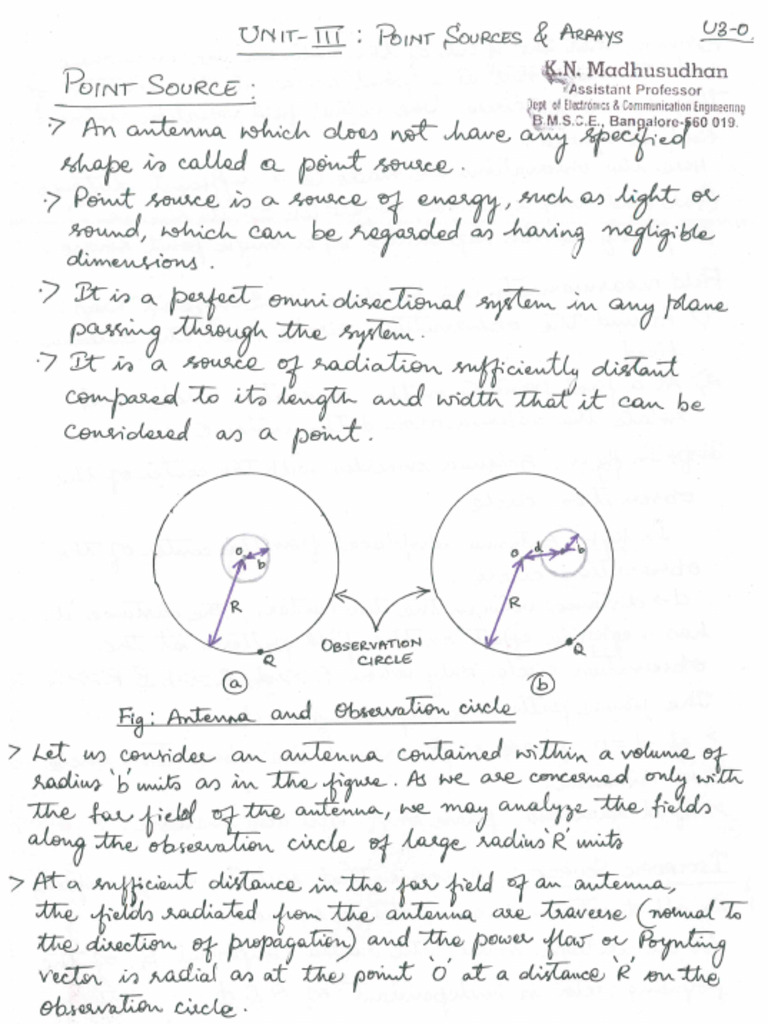 UNIT-III : POINT SOURCES & ARRAYS
U3-0
K.N. Madhusudhan
Assistant Professor
Dept of Electronics & Communication Engineering
B.M.S.C.E., Bangalore-560 019.
POINT SOURCE :
·> An antenna which does not have any specified
shape is called a point source.
·> Point source is a source of energy, such as light or
sound, which can be regarded as having negligible
dimensions.
·> It is a perfect omnidirectional system in any plane
passing through the system.
·> It is a source of radiation sufficiently distant
compared to its length and width that it can be
considered as a point.
O
b
R
Q
(a)
OBSERVATION
CIRCLE
O
d
b
R
Q
(b)
Fig: Antenna and Observation circle
> Let us consider an antenna contained within a volume of
radius 'b' units as in the figure. As we are concerned only with
the far field of the antenna, we may analyze the fields
along the observation circle of large radius 'R' units
> At a sufficient distance in the far field of an antenna,
the fields radiated from the antenna are traverse (normal to
the direction of propagation) and the power flow or Poynting
vector is radial as at the point 'O' at a distance 'R' on the
observation circle.